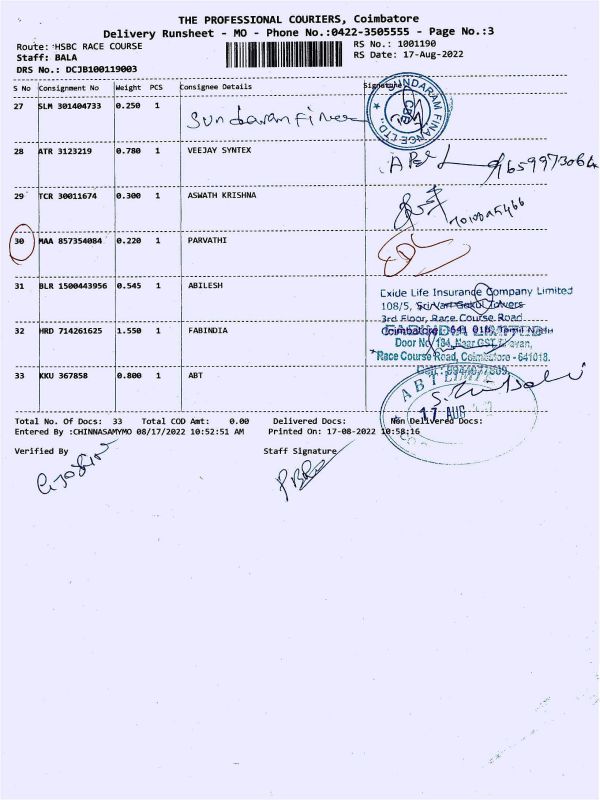 THE PROFESSIONAL COURIERS, Coimbatore
Delivery Runsheet - MO - Phone No.:0422-3505555 - Page No.:3
Route: HSBC RACE COURSE
RS No.: 1001190
Staff: BALA
RS Date: 17-Aug-2022
DRS No.: DCJB100119003
S No Consignment No Weight PCS Consignee Details Signature
27 SLM 301404733 0.250 1 Sundaram Finance
SUNDARAM FINANCE LTD.,
CBE
28 ATR 3123219 0.780 1 VEEJAY SYNTEX
29 TCR 30011674 0.300 1 ASWATH KRISHNA
30 MAA 857354084 0.220 1 PARVATHI
31 BLR 1500443956 0.545 1 ABILESH
Exide Life Insurance Company Limited
108/5, Sri Vari Gokul Towers
3rd Floor, Race Course Road
Coimbatore - 641 018, Tamil Nadu
32 HRD 714261625 1.550 1 FABINDIA
FABINDIA LIMITED
Door No. 184, Near GST Bhavan,
Race Course Road, Coimbatore - 641018.
33 KKU 367858 0.800 1 ABT
ABT LIMITED
17 AUG
Total No. Of Docs: 33 Total COD Amt: 0.00 Delivered Docs: Non Delivered Docs:
Entered By :CHINNASAMYMO 08/17/2022 10:52:51 AM Printed On: 17-08-2022 10:58:16
Verified By Staff Signature